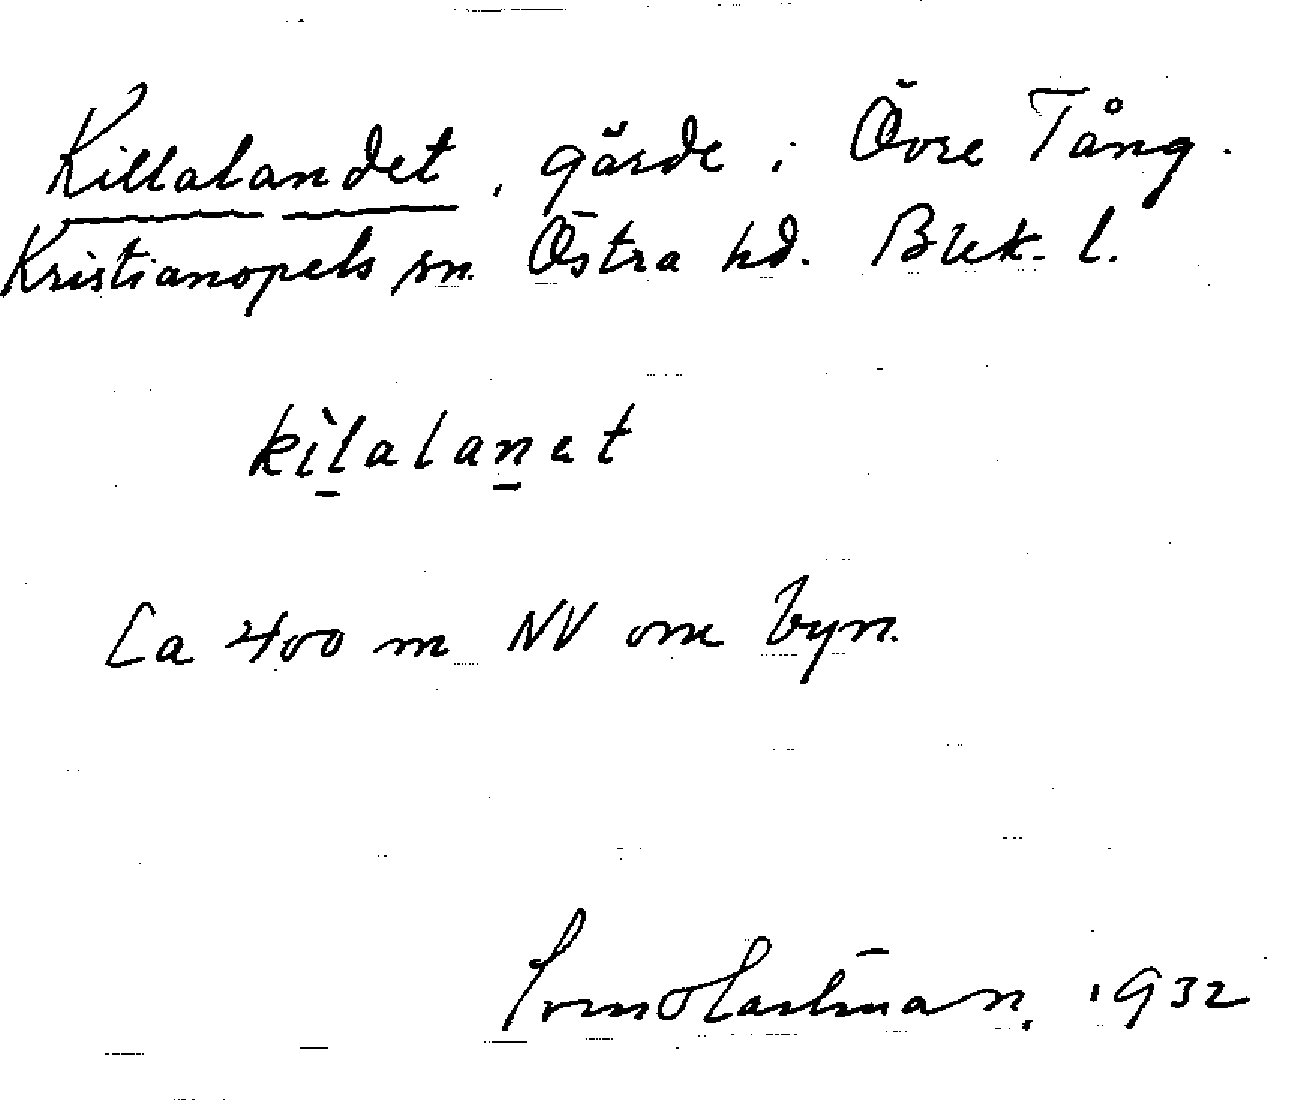 Killalandet, gärde i Övre Tång.
Kristianopels sn. Östra hd. Blek. l.
kìl̠alan̠et
Ca 400 m NV om byn.
Sven Hartman. 1932